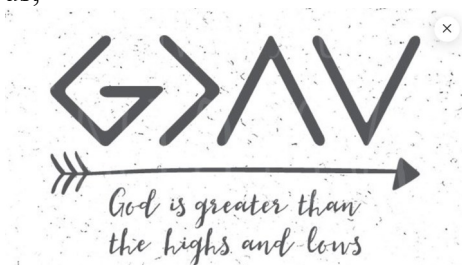 G > ∧ ∨
God is greater than
the highs and lows